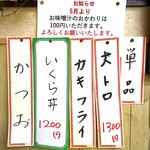 お知らせ
5月より
お味噌汁のおかわりは
100円いただきます。
よろしくお願いいたします。
単品
大トロ
1300円
カキフライ
いくら丼
1200円
かつお